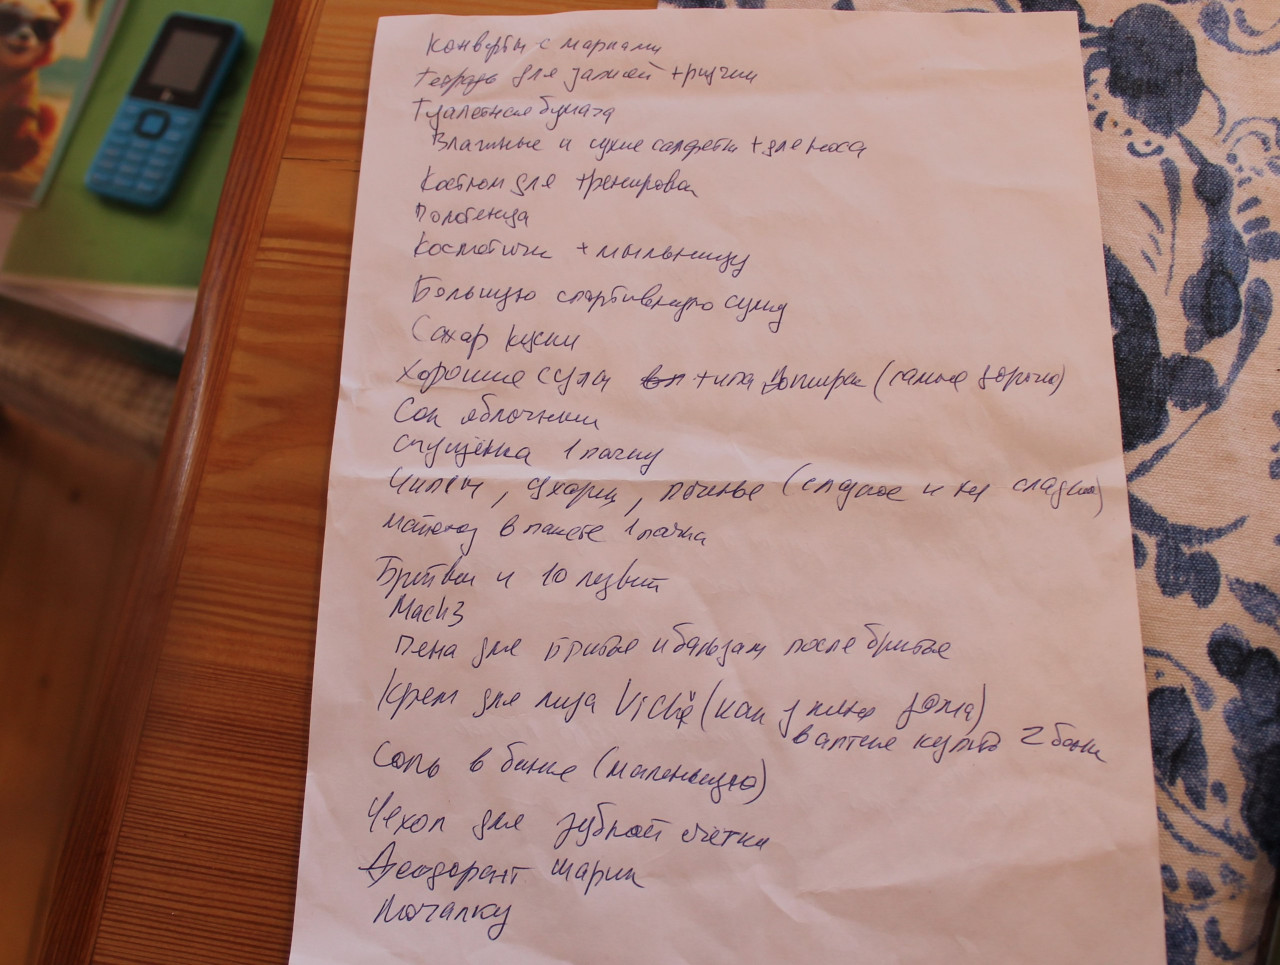 Конверты с марками
Тетрадь для записей + ручки
Туалетная бумага
Влажные и сухие салфетки + для носа
Костюм для тренировки
Полотенца
Косметички + мыльницу
Большую спортивную сумку
Сахар куски
Хорошие супы типа (самые дорогие)
Сок яблочный
Сгущёнка 1 пачку
Чипсы, сухари, печенье (сладкое и не сладкое)
Майонез в пакете 1 пачка
Бритвы и 10 лезвий
Mach3
Пена для бритья и бальзам после бритья
Крем для лица Vichy (как у меня дома)
в аптеке купить 2 банки
Соль в банке (маленькую)
Чехол для зубной щётки
Дезодорант шарик
Мочалку